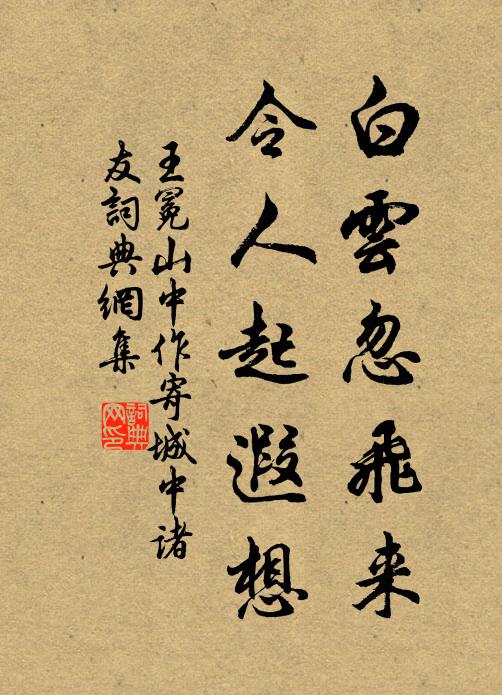 白雲忽飛来
令人起遐想
王冕山中作寄城中諸
友詞典網集
詞典
网印